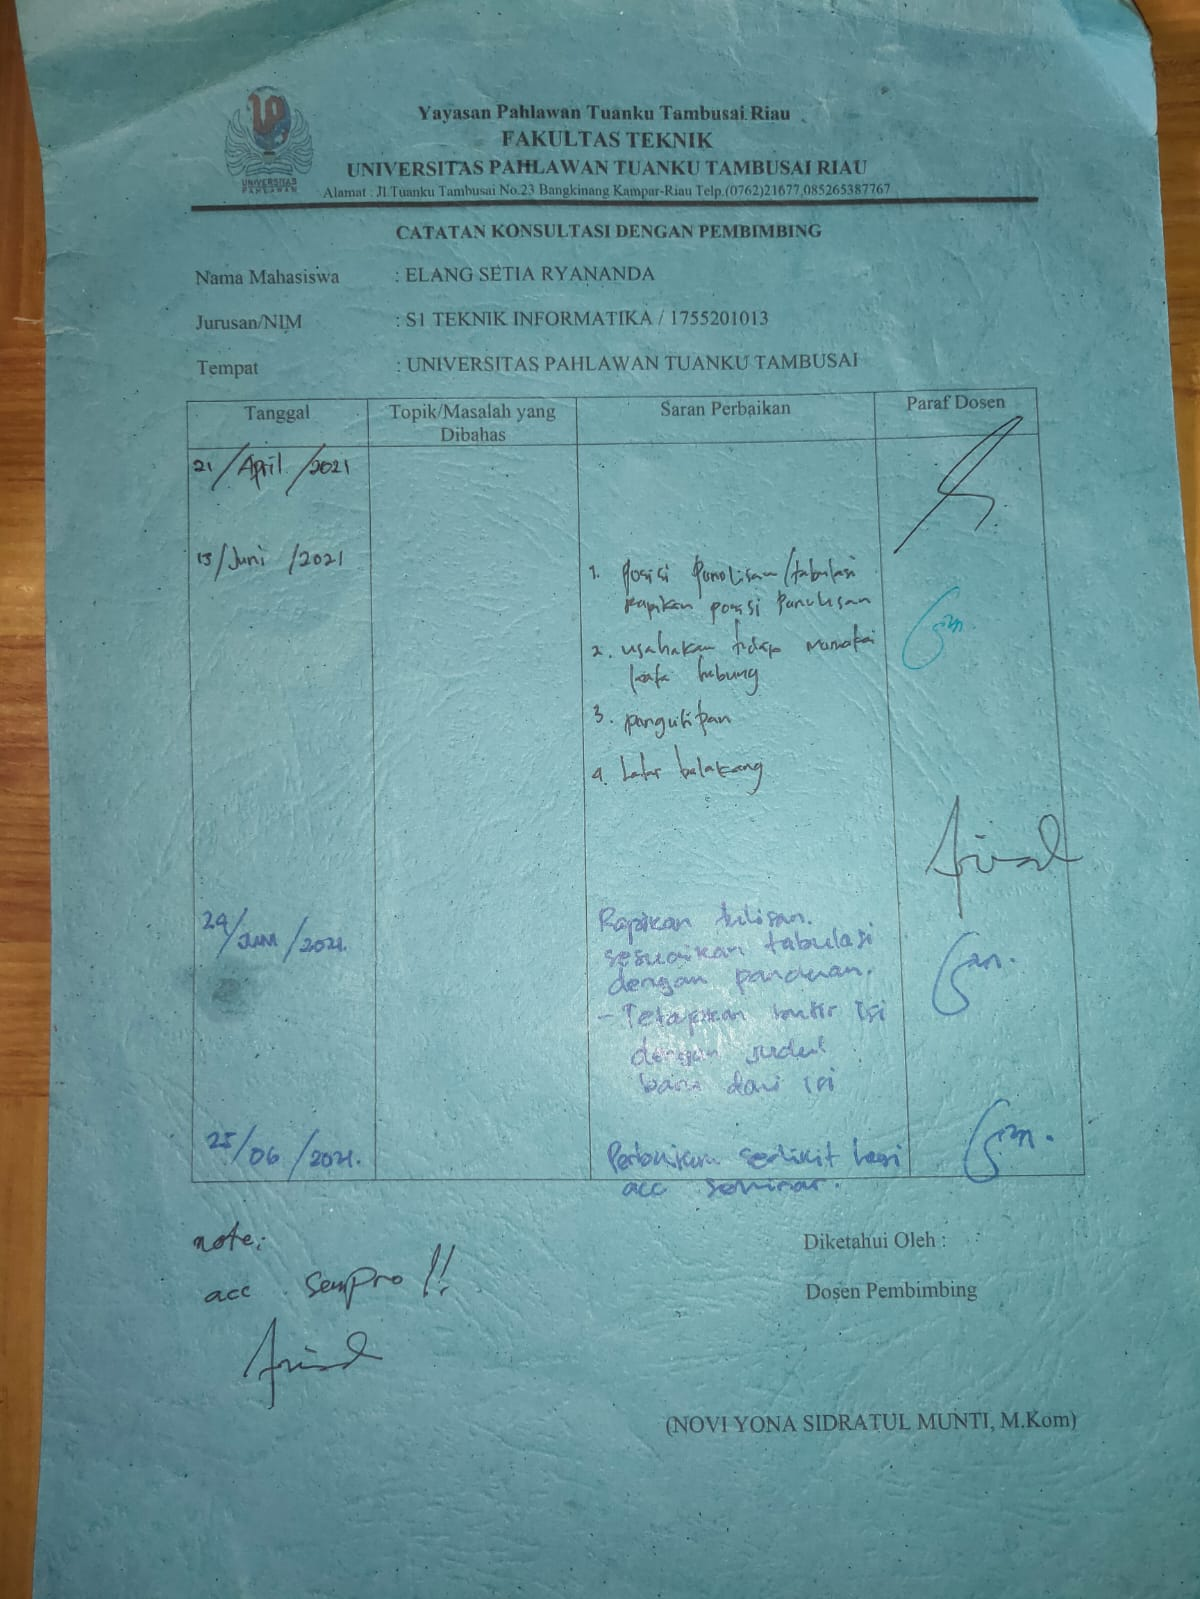 UNIVERSITAS
PAHLAWAN
Yayasan Pahlawan Tuanku Tambusai Riau
FAKULTAS TEKNIK
UNIVERSITAS PAHLAWAN TUANKU TAMBUSAI RIAU
Alamat : Jl.Tuanku Tambusai No.23 Bangkinang Kampar-Riau Telp.(0762)21677,085265387767
CATATAN KONSULTASI DENGAN PEMBIMBING
Nama Mahasiswa : ELANG SETIA RYANANDA
Jurusan/NIM : S1 TEKNIK INFORMATIKA / 1755201013
Tempat : UNIVERSITAS PAHLAWAN TUANKU TAMBUSAI
Tanggal Topik/Masalah yang Saran Perbaikan Paraf Dosen
Dibahas
21/April/2021
/Juni /2021
1. posisi penulisan/tabulasi
rapikan posisi penulisan
2. usahakan tidak memakai
kata hubung
3. pengutipan
4. Latar belakang
24/Juni/2021.
Rapikan tulisan.
sesuaikan tabulasi
dengan panduan.
- Tetapkan butir isi
dengan judul
baru dari isi
25/06/2021.
Perbaikan sedikit lagi
acc seminar.
note:
acc sempro!!
Diketahui Oleh :
Dosen Pembimbing
(NOVI YONA SIDRATUL MUNTI, M.Kom)